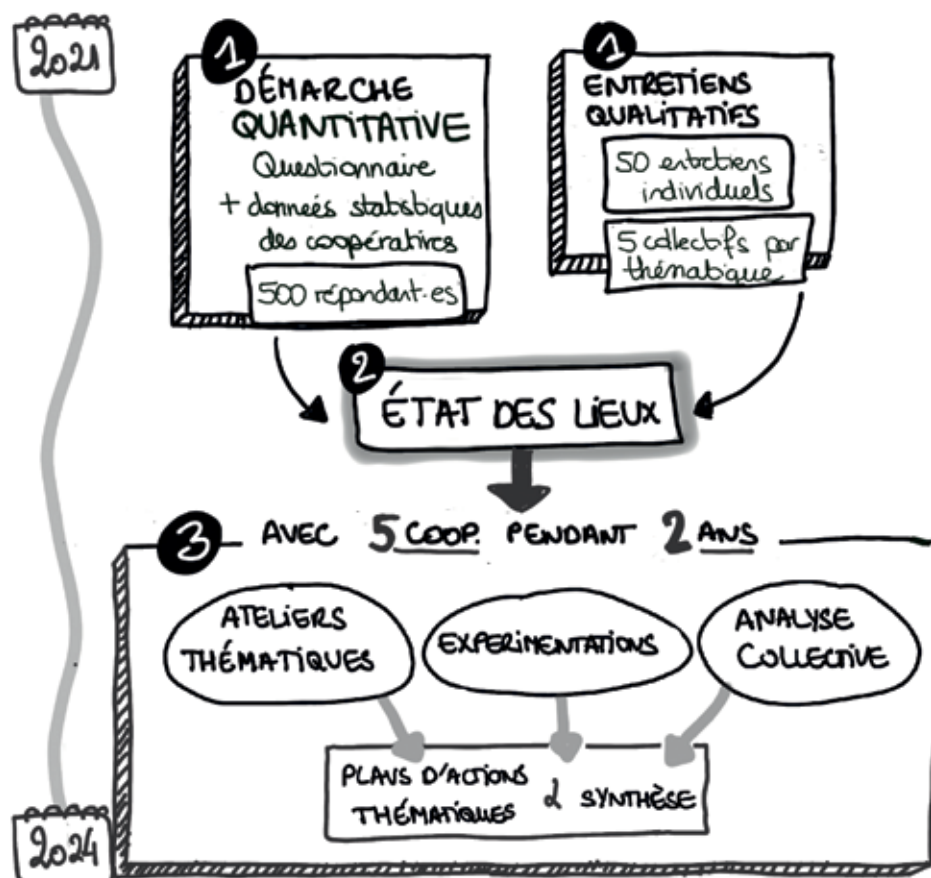 2021
1
DÉMARCHE
QUANTITATIVE
Questionnaire
+ données statistiques
des coopératives
500 répondant·es
1
ENTRETIENS
QUALITATIFS
50 entretiens
individuels
5 collectifs par
thématique
2
ÉTAT DES LIEUX
3 AVEC 5 COOP. PENDANT 2 ANS
ATELIERS
THÉMATIQUES
EXPERIMENTATIONS
ANALYSE
COLLECTIVE
PLANS D'ACTIONS
THÉMATIQUES & SYNTHÈSE
2024